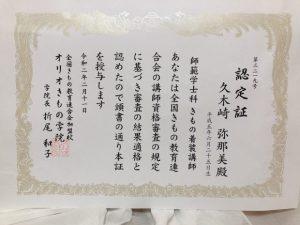 第三二一九号
認定証
久木崎 弥那美殿
平成五年六月二十五日生
師範学士科 きもの着装講師
あなたは全国きもの教育連
合会の講師資格審査の規定
に基づき審査の結果適格と
認めたので頭書の通り本証
を授与します
令和二年二月十一日
全国きもの教育連合会加盟校
オリオきもの学院
学院長 折尾 和子